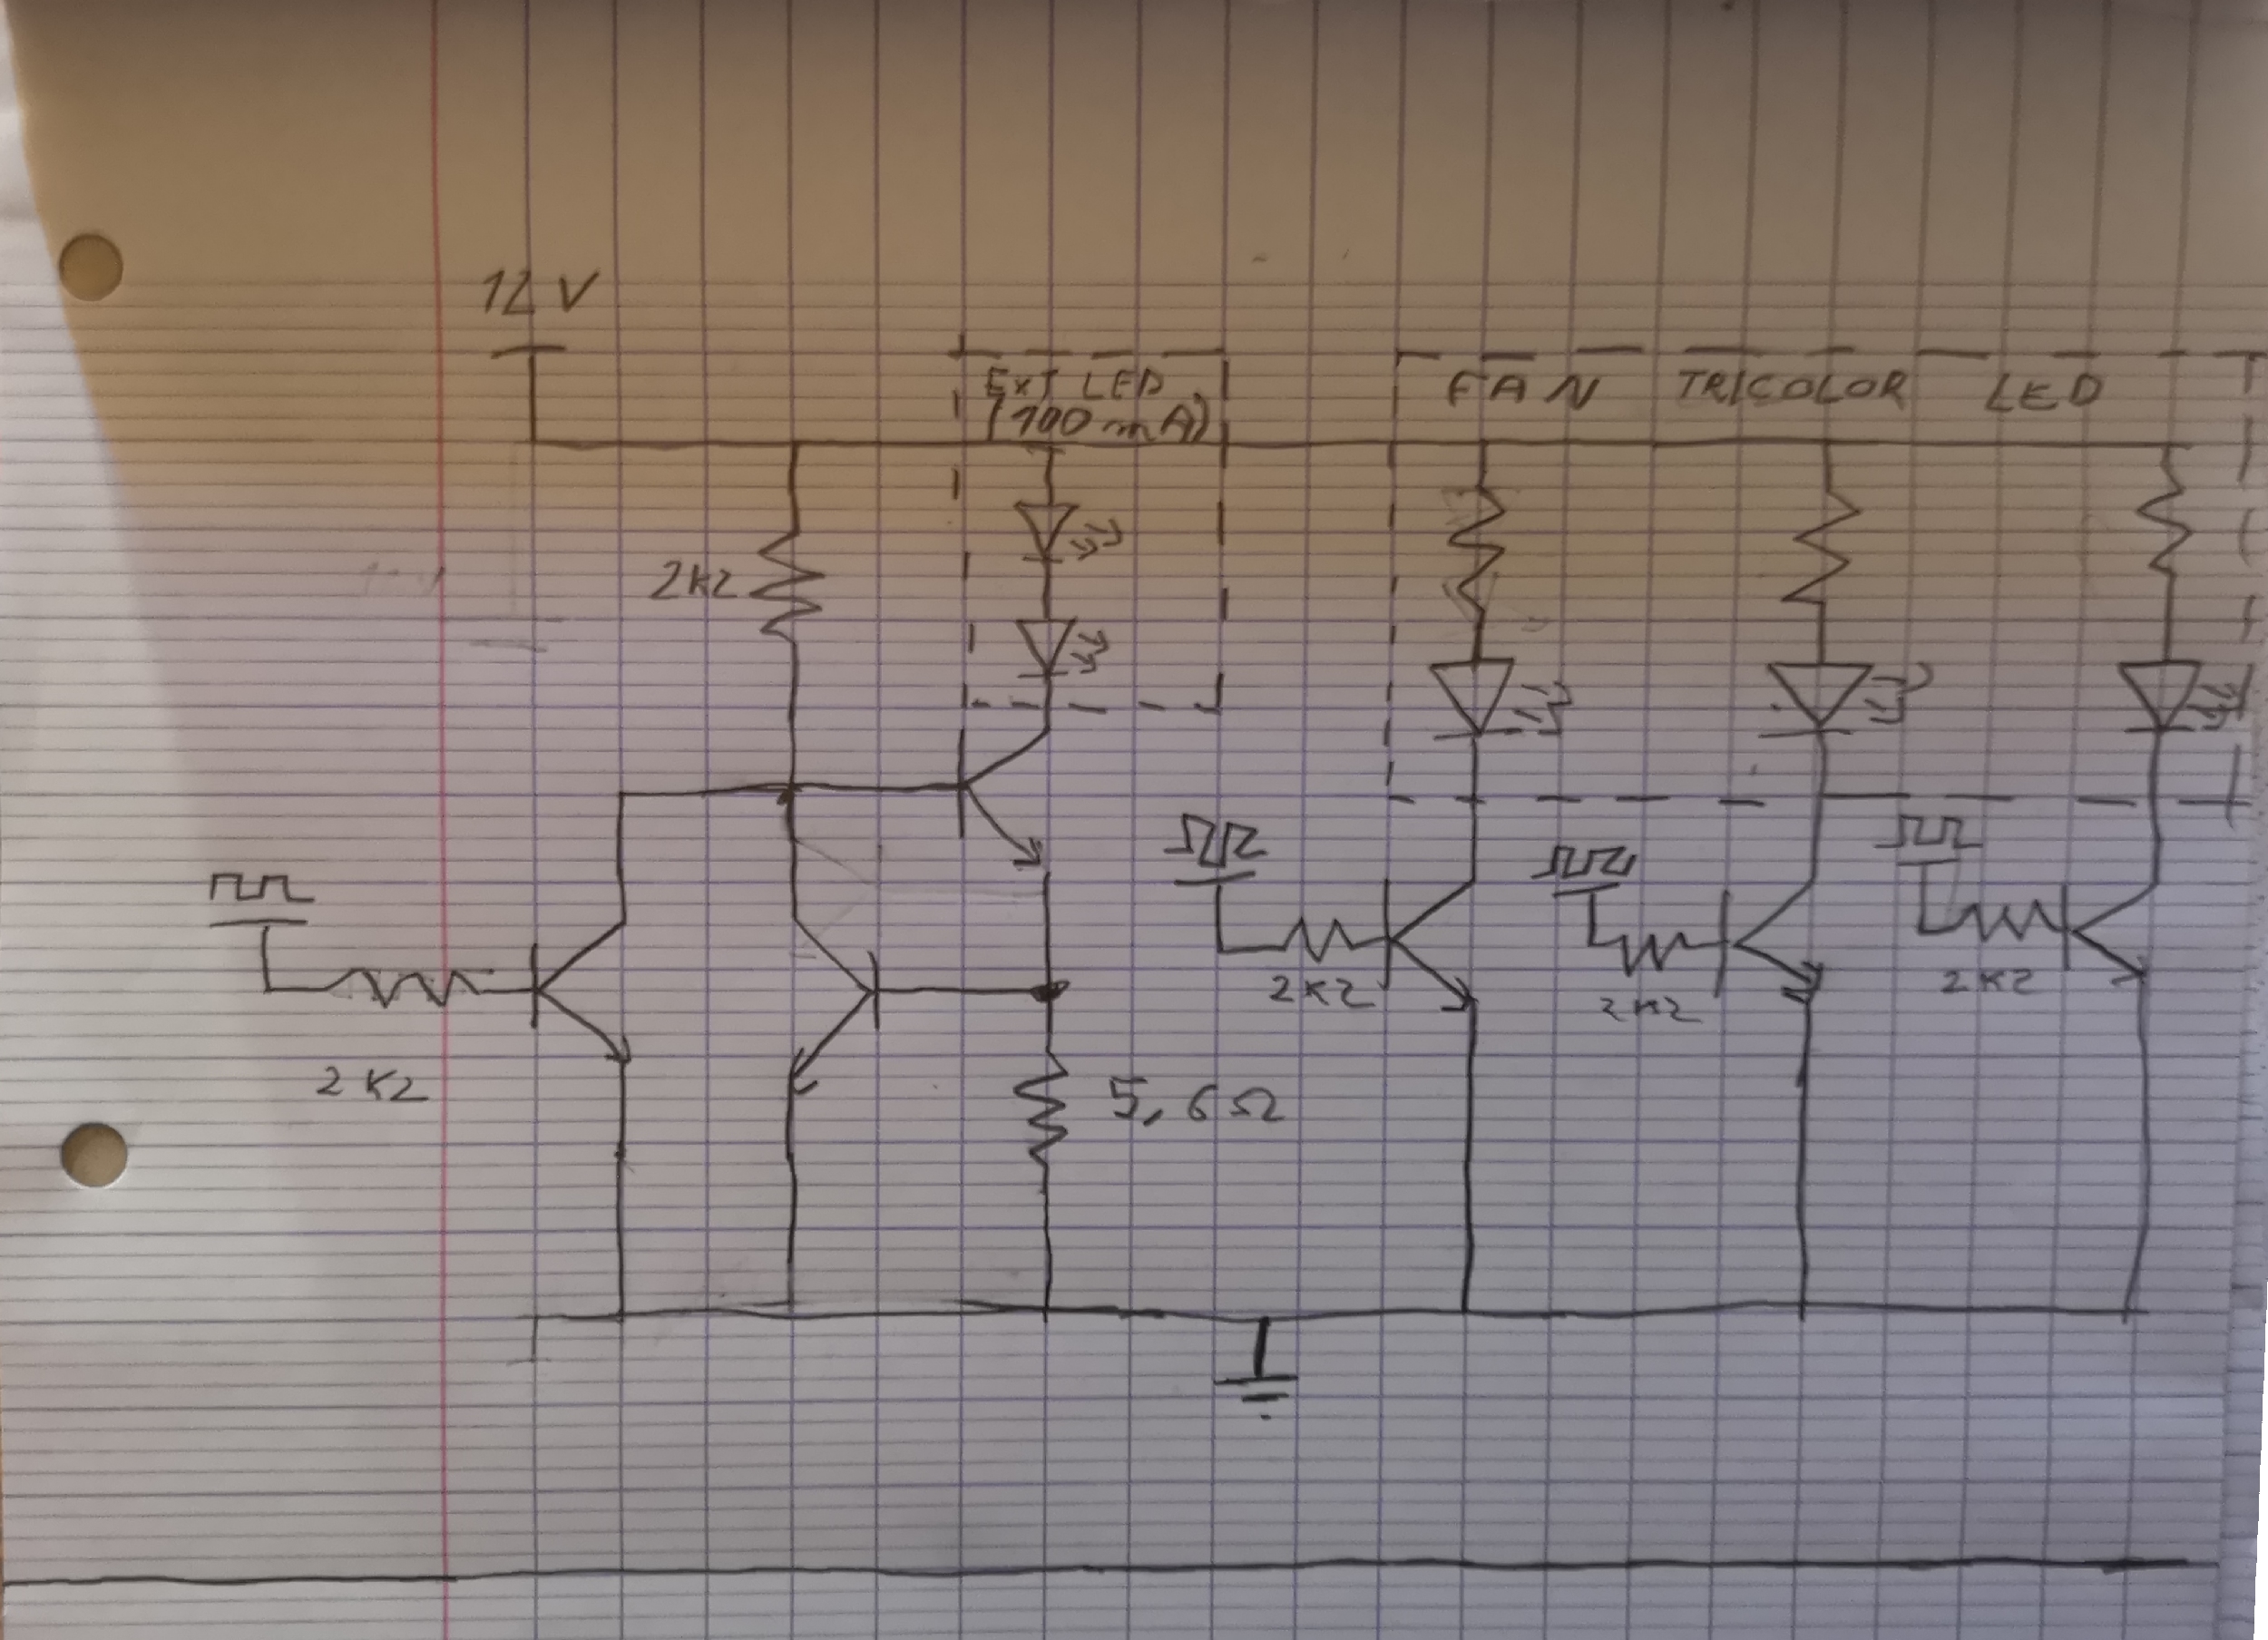 12 V
EXT LED
(100 mA)
FAN TRICOLOR LED
2K2
2K2
5,6Ω
2K2
2K2
2K2